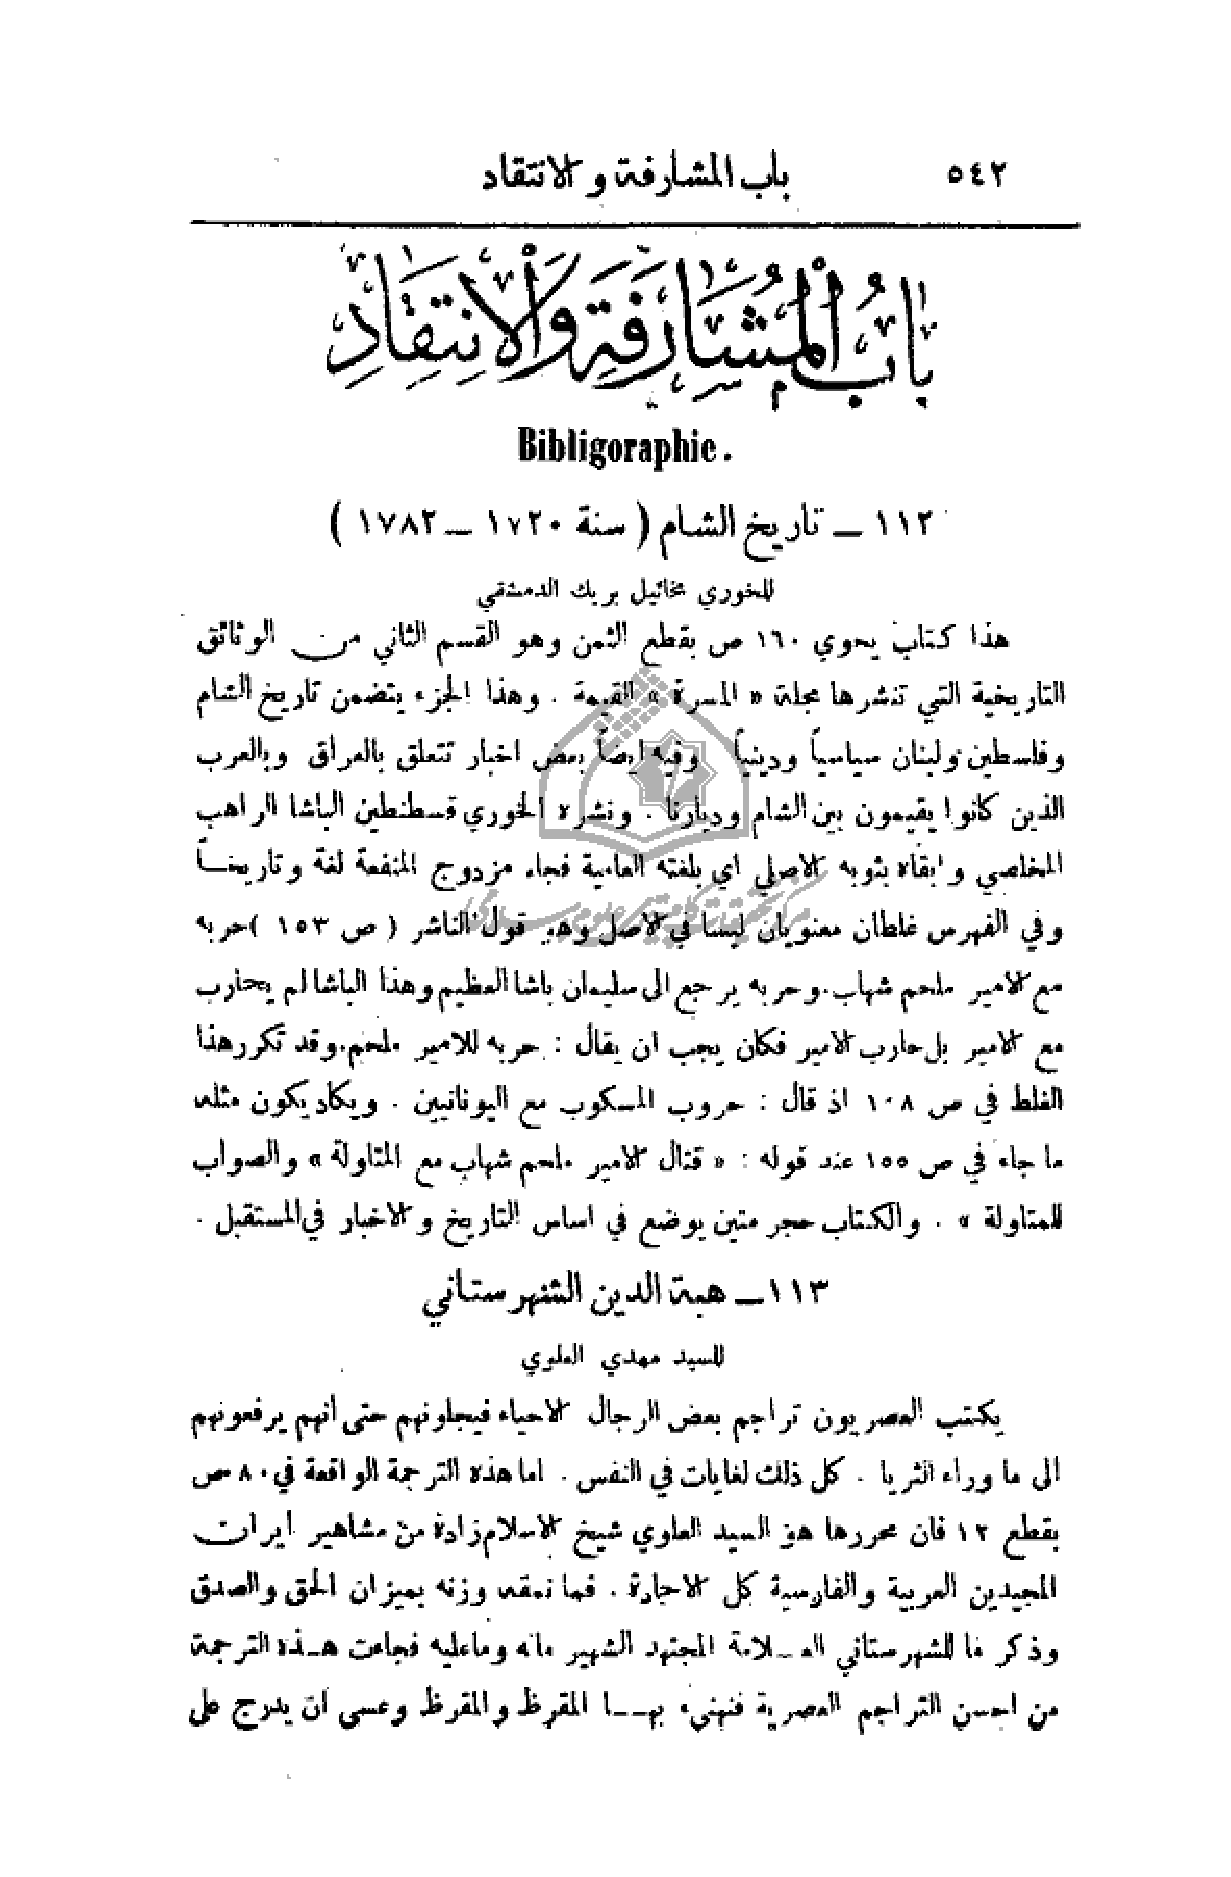 ٥٤٢ باب المشارفة والانتقاد
بَابُ الْمُشَارَفَةِ وَالْاِنْتِقَادِ
Bibligoraphie.
١١٢ ــ تاريخ الشام ( سنة ١٧٢٠ ــ ١٧٨٢ )
للخوري مخائيل بريك الدمشقي
هذا كتاب يحوي ١٦٠ ص بقطع الثمن وهو القسم الثاني من الوثائق
التاريخية التي تنشرها مجلة « المسرة » القيمة . وهذا الجزء يتضمن تاريخ الشام
وفلسطين ولبنان سياسياً ودينياً وفيه ايضاً بعض اخبار تتعلق بالعراق وبالعرب
الذين كانوا يقيمون بين الشام وديارنا . ونشره الخوري قسطنطين الباشا الراهب
المخلصي وابقاه بثوبه الاصلي اي بلغته العامية فجاء مزدوج المنفعة لغة وتاريخاً
وفي الفهرس غلطان معنويان ليسا في الاصل وهو قول الناشر ( ص ١٥٣ ) حربه
مع الامير ملحم شهاب . وحربه يرجع الى سليمان باشا العظيم وهذا الباشا لم يحارب
مع الامير بل حارب الامير فكان يجب ان يقال : حربه للامير ملحم . وقد تكرر هذا
الغلط في ص ١٠٨ اذ قال : حروب المسكوب مع اليونانيين . ويكاد يكون مثله
ما جاء في ص ١٥٥ عند قوله : « قتال الامير ملحم شهاب مع المتاولة » والصواب
للمتاولة » . والكتاب حجر متين يوضع في اساس التاريخ والاخبار في المستقبل .
١١٣ ــ هبة الدين الشهرستاني
للسيد مهدي العلوي
يكتب العصريون تراجم بعض الرجال الاحياء فيجلونهم حتى انهم يرفعونهم
الى ما وراء الثريا . كل ذلك لغايات في النفس . اما هذه الترجمة الواقعة في ٨٠ ص
بقطع ١٢ فان محررها هو السيد العلوي شيخ الاسلام زادة من مشاهير ايران
المجيدين العربية والفارسية كل الاجادة . فما نمقه وزنه بميزان الحق والصدق
وذكر ما للشهرستاني العـلامة المجتهد الشهير ماله وما عليه فجاءت هـذه الترجمة
من احسن التراجم العصرية فنهنيء بهـا المقرظ والمقرظ وعسى ان يدرج على